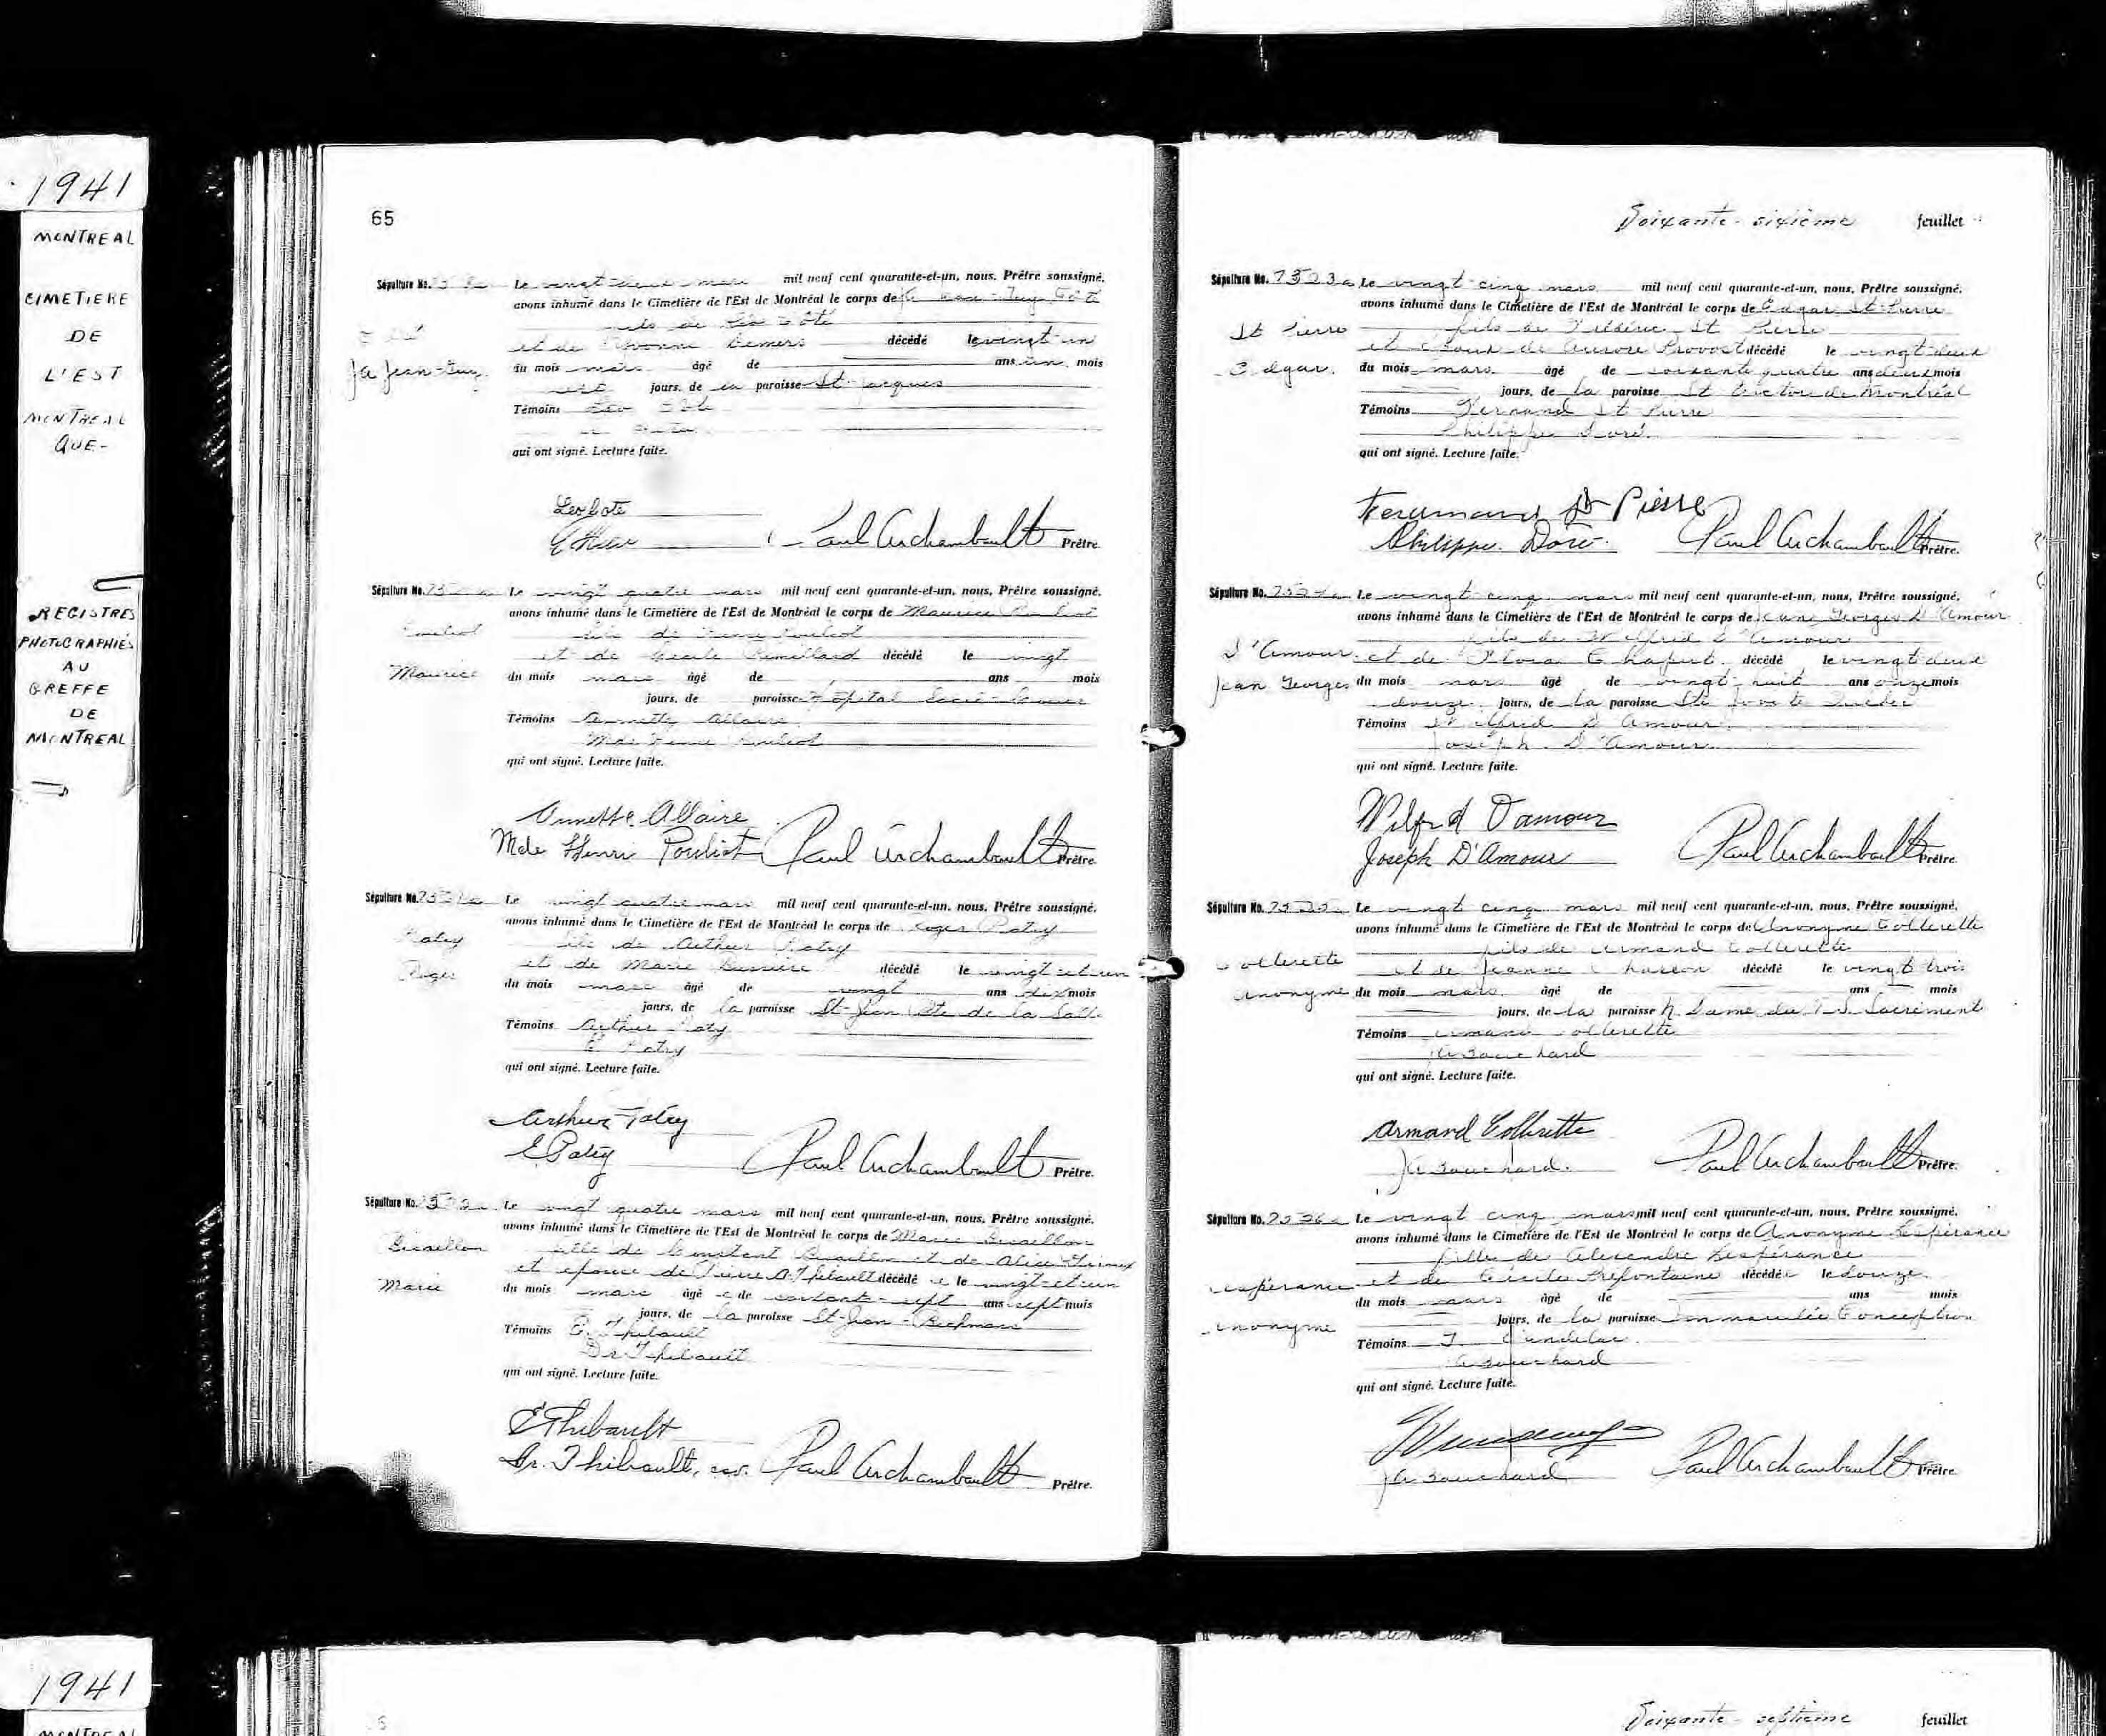 1941
MONTREAL
CIMETIERE
DE
L'EST
MONTREAL
QUE-
REGISTRES
PHOTOGRAPHIÉS
AU
GREFFE
DE
MONTREAL
65
Sépulture No. Le vingt deux mars mil neuf cent quarante-et-un, nous, Prêtre soussigné,
avons inhumé dans le Cimetière de l'Est de Montréal le corps de Jean-Guy Côté
fils de Léo Côté
et de Yvonne Demers décédé le vingt un
Ja Jean-Guy
du mois mars âgé de ans un mois
jours, de la paroisse St-Jacques
Témoins Leo Côté
qui ont signé. Lecture faite.
Leo Coté
Paul Archambault Prêtre.
Sépulture No. Le vingt quatre mars mil neuf cent quarante-et-un, nous, Prêtre soussigné,
avons inhumé dans le Cimetière de l'Est de Montréal le corps de Maurice Pouliot
Pouliot
fils de Henri Pouliot
et de Cécile Remillard décédé le vingt
Maurice
du mois mars âgé de ans mois
jours, de paroisse Hôpital Sacré-Coeur
Témoins Annette Allaire
Mde Henri Pouliot
qui ont signé. Lecture faite.
Annette Allaire
Mde Henri Pouliot Paul Archambault Prêtre.
Sépulture No. Le vingt quatre mars mil neuf cent quarante-et-un, nous, Prêtre soussigné,
avons inhumé dans le Cimetière de l'Est de Montréal le corps de Roger Patry
Patry
fils de Arthur Patry
Roger
et de Marie décédé le vingt et un
du mois mars âgé de vingt ans dix mois
jours, de la paroisse St-Jean Bte de la Salle
Témoins Arthur Patry
E Patry
qui ont signé. Lecture faite.
Arthur Patry
E Patry Paul Archambault Prêtre.
Sépulture No. Le vingt quatre mars mil neuf cent quarante-et-un, nous, Prêtre soussigné,
avons inhumé dans le Cimetière de l'Est de Montréal le corps de Marie
fille de Constant et de Alice
et épouse de Pierre A Thibault décédé e le vingt-et-un
Marie
du mois mars âgé e de soixante-sept ans sept mois
jours, de la paroisse St-Jean-Berchmans
Témoins E. Thibault
Dr Thibault
qui ont signé. Lecture faite.
E Thibault
Dr. Thibault, Paul Archambault Prêtre.
Soixante-sixième feuillet
Sépulture No. 7523a Le vingt cinq mars mil neuf cent quarante-et-un, nous, Prêtre soussigné,
avons inhumé dans le Cimetière de l'Est de Montréal le corps de Edgar St-Pierre
St Pierre
fils de St Pierre
et époux de Aurore Provost décédé le vingt deux
Edgar.
du mois mars âgé de soixante quatre ans deux mois
jours, de la paroisse St Victor de Montréal
Témoins Fernand St Pierre
Philippe Doré
qui ont signé. Lecture faite.
Fernand St Pierre
Philippe Doré. Paul Archambault Prêtre.
Sépulture No. 7524a Le vingt cinq mars mil neuf cent quarante-et-un, nous, Prêtre soussigné,
avons inhumé dans le Cimetière de l'Est de Montréal le corps de Jean Georges D'Amour
fils de Wilfrid D'Amour
D'Amour
et de Flora Chaput décédé le vingt deux
Jean Georges
du mois mars âgé de vingt huit ans onze mois
douze jours, de la paroisse Ste Québec
Témoins Wilfrid D'Amour
Joseph D'Amour
qui ont signé. Lecture faite.
Wilfrd Damour
Joseph D'Amour Paul Archambault Prêtre.
Sépulture No. 7525a Le vingt cinq mars mil neuf cent quarante-et-un, nous, Prêtre soussigné,
avons inhumé dans le Cimetière de l'Est de Montréal le corps de Anonyme Collerette
fils de Armand Collerette
Collerette
et de Jeanne Charron décédé le vingt trois
Anonyme
du mois mars âgé de ans mois
jours, de la paroisse N. Dame du T. S. Sacrement
Témoins Armand Collerette
Ja Bouchard
qui ont signé. Lecture faite.
Armand Collerette
Ja Bouchard. Paul Archambault Prêtre.
Sépulture No. 7526a Le vingt cinq mars mil neuf cent quarante-et-un, nous, Prêtre soussigné,
avons inhumé dans le Cimetière de l'Est de Montréal le corps de Anonyme Lespérance
fille de Alexandre Lespérance
Lespérance
et de Cécile Préfontaine décédée le douze
du mois mars âgé de ans mois
Anonyme
jours, de la paroisse Immaculée Conception
Témoins J.
Ja Bouchard
qui ont signé. Lecture faite.
Ja Bouchard Paul Archambault Prêtre.
1941
MONTREAL
Soixante-septième feuillet